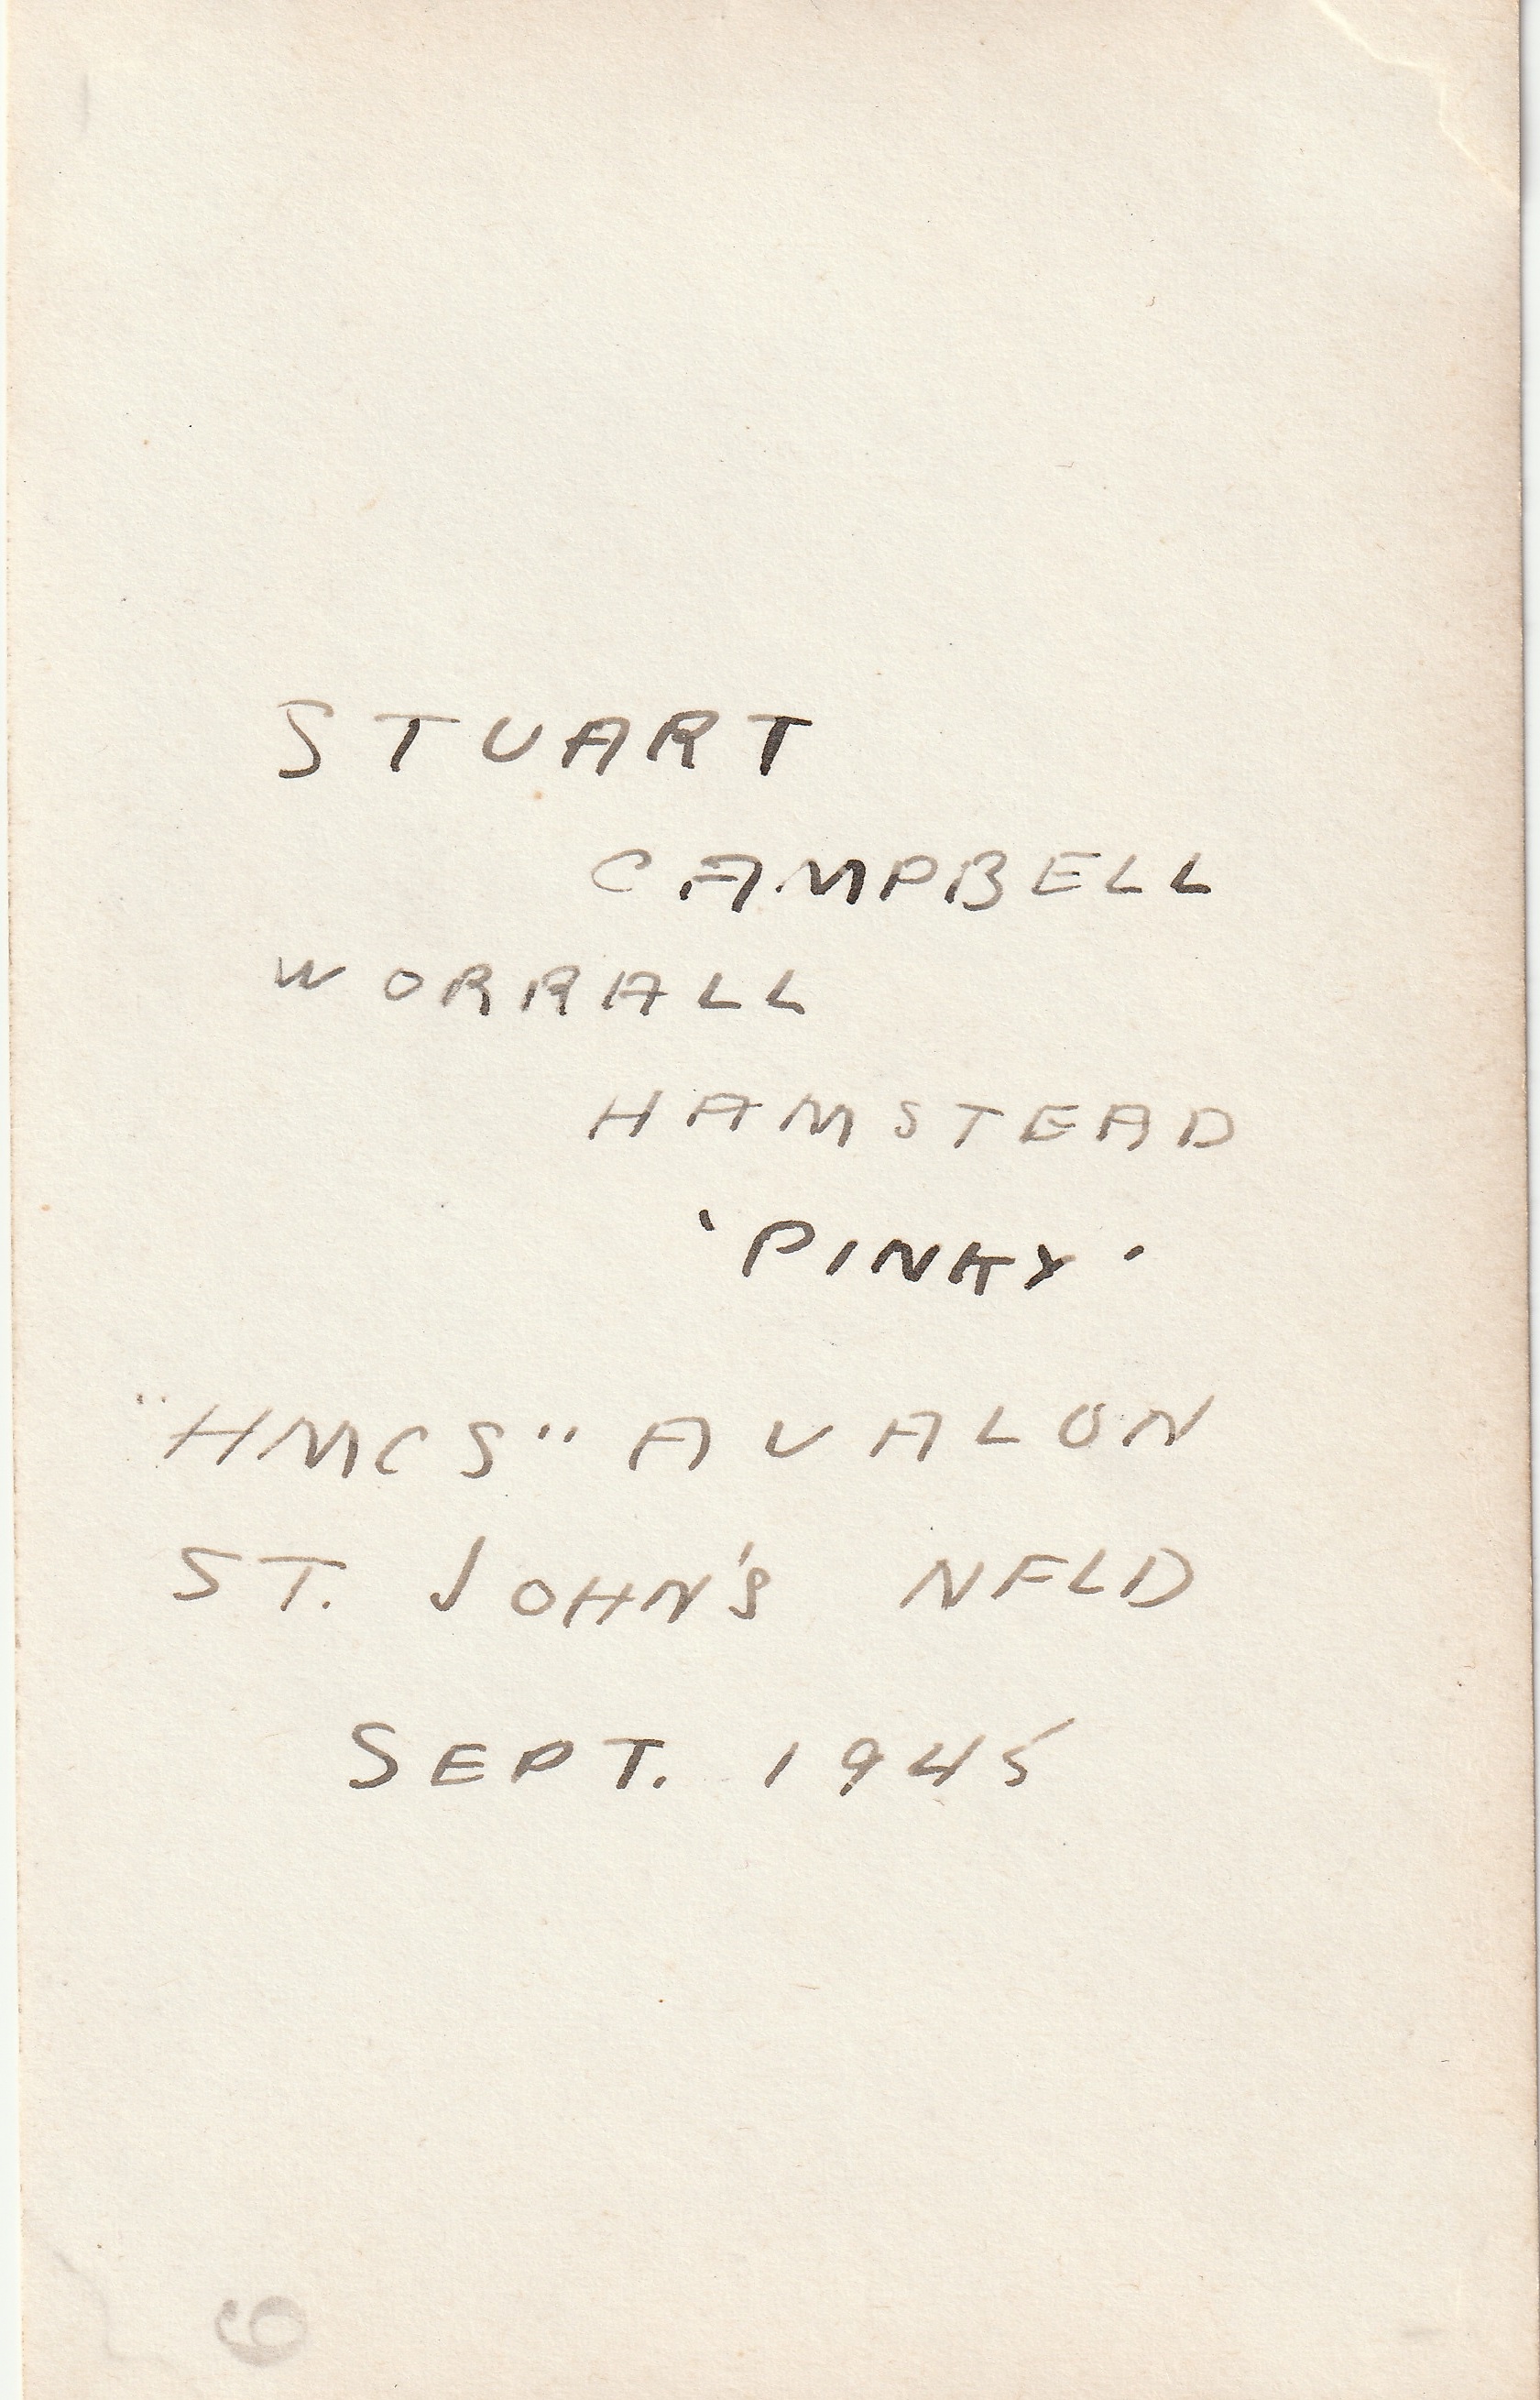 STUART
CAMPBELL
WORRALL
HAMSTEAD
'PINKY'
"HMCS" AVALON
ST. JOHN'S NFLD
SEPT. 1945